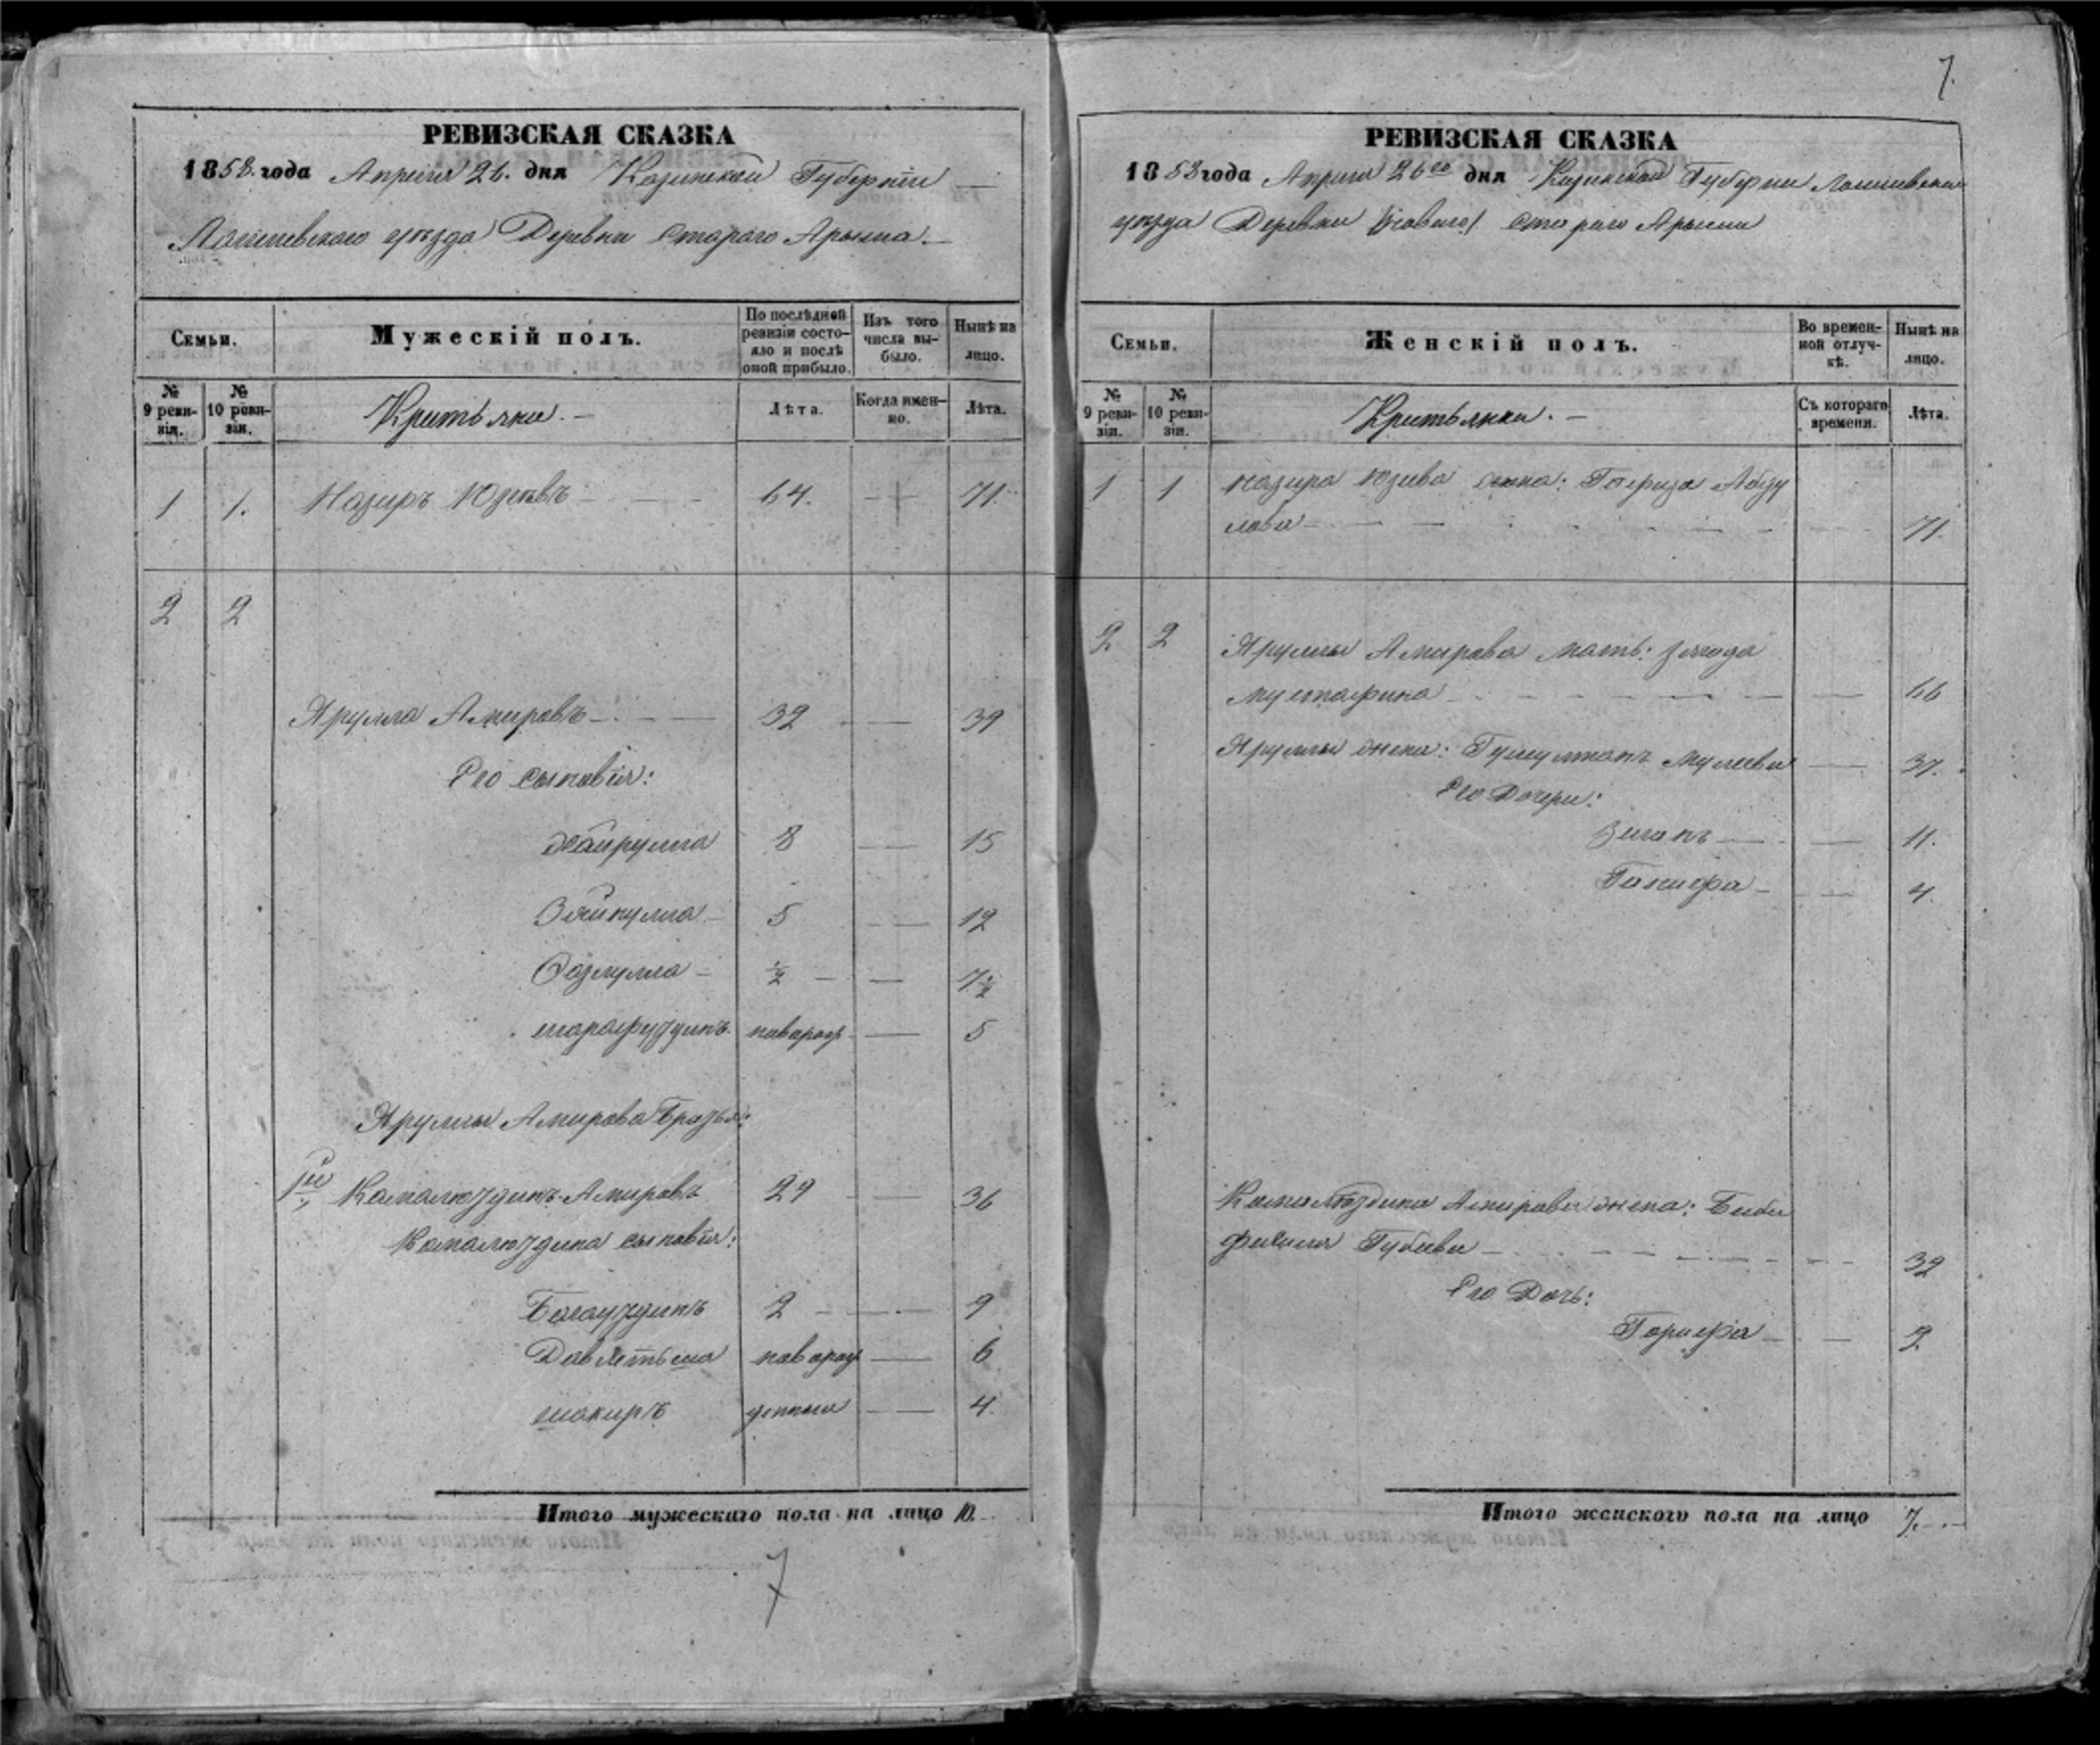 РЕВИЗСКАЯ СКАЗКА
1858. года Апреля 26. дня Казанской Губерніи
Лаишевского уѣзда Деревни Стараго Арыша.
Семьи.
Мужескій полъ.
По послѣдней ревизіи состояло и послѣ оной прибыло.
Изъ того числа выбыло.
Нынѣ на лицо.
№ 9 ревизіи.
№ 10 ревизіи.
Лѣта.
Когда именно.
Лѣта.
1 1. Назиръ Юзеевъ 64. 71.
2 2
Ярулла Амировъ 32 39
Его сыновья:
Хайрулла 8 15
Зейнулла 5 12
Фазлулла ½ 7½
Шарафутдинъ новорож 5
Яруллы Амирова Братья:
1й Камалютдинъ Амировъ 29 36
Камалютдина сыновья:
Багаутдинъ 2 9
Давлетьша новорож 6
Шакиръ денныя 4.
Итого мужескаго пола на лицо 10.
7
7.
РЕВИЗСКАЯ СКАЗКА
1858 года Апреля 26го дня Казанской Губерни Лаишевскаго
уѣзда Деревни Стараго Арыша
Семьи.
Женскій полъ.
Во временной отлучкѣ.
Нынѣ на лицо.
№ 9 ревизіи.
№ 10 ревизіи.
Съ котораго времени.
Лѣта.
1 1 Назира Юзеева жена: Абду
лова 71.
2 2 Яруллы Амирова мать: Зягода
Мустафина 66
Яруллы жена: 37.
Его Дочери:
11.
Ганифа 4.
Камалютдина Амирова жена: Биби
Губеева 32
Его Дочь:
Гарифа 9.
Итого женского пола на лицо 7.